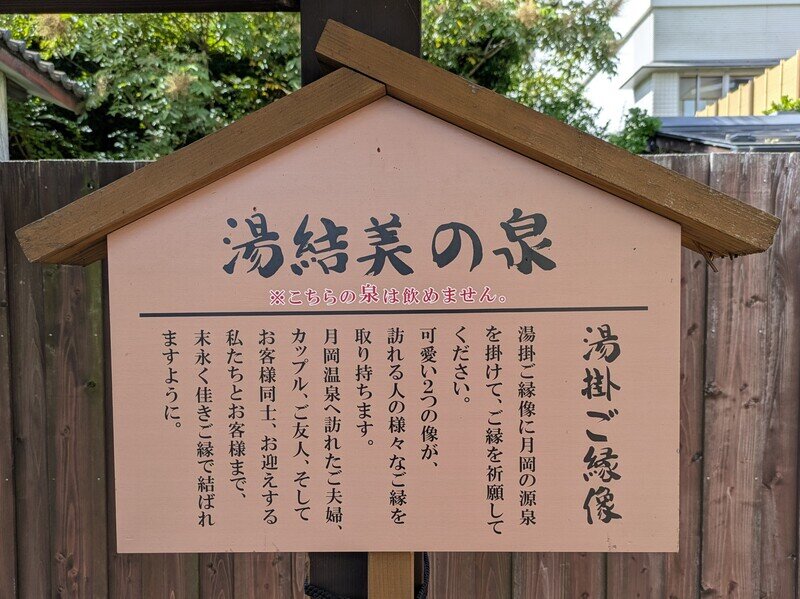 湯結美の泉
※こちらの泉は飲めません。
湯掛ご縁像
湯掛ご縁像に月岡の源泉
を掛けて、ご縁を祈願して
ください。
可愛い2つの像が、
訪れる人の様々なご縁を
取り持ちます。
月岡温泉へ訪れたご夫婦、
カップル、ご友人、そして
お客様同士、お迎えする
私たちとお客様まで、
末永く佳きご縁で結ばれ
ますように。